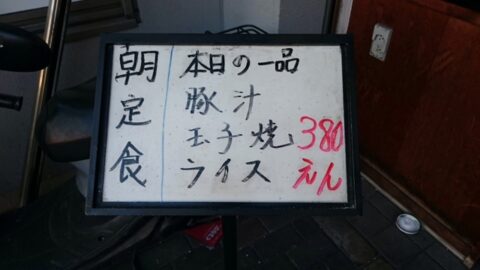 朝定食
本日の一品
豚汁
玉子焼 380
ライス えん